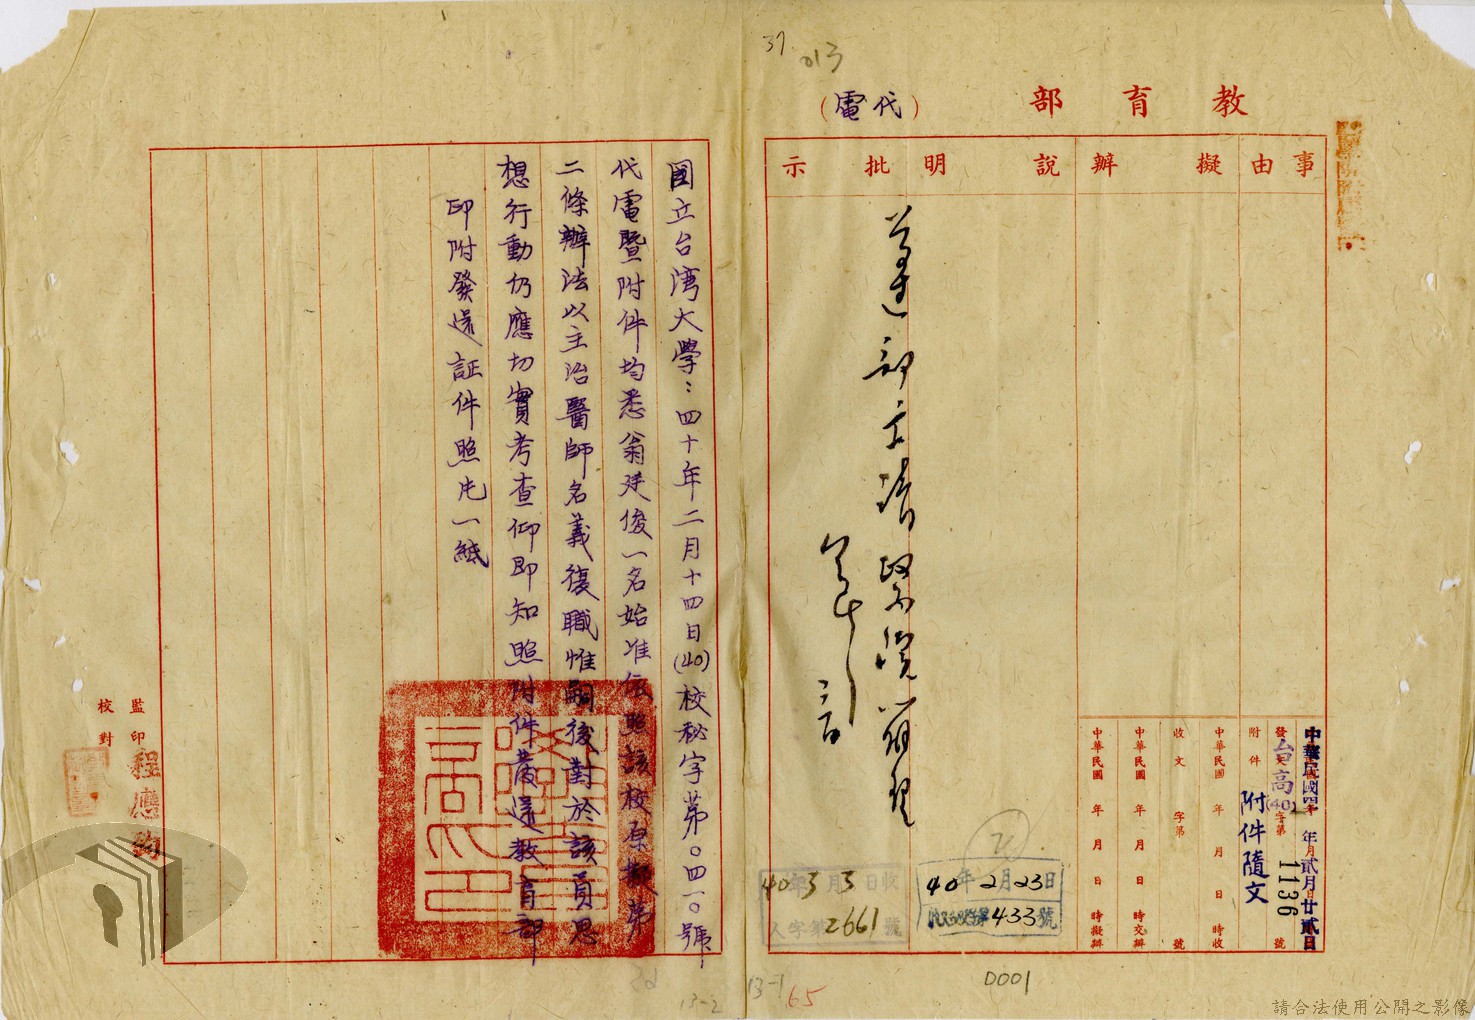 37
013
教育部
(代電)
事由
擬辦
說明
批示
中華民國四十年貳月廿貳日
發文
台高(40)字第1136號
附件
附件隨文
中華民國 年 月 日 時收
收文 字第 號
中華民國 年 月 日 時交辦
中華民國 年 月 日 時擬辦
遵部主清
40年2月23日
433號
40年3月3日收
人字第2661號
國立台湾大學：四十年二月十四日(40)校秘字第〇四一〇號
代電暨附件均悉翁廷俊一名始准依照該校原擬第
二條辦法以主治醫師名義復職惟嗣後對於該員思
想行動仍應切實考查仰即知照附件發還教育部
印附發還証件照片一紙
監印
程應鈞
校對
13-2
13-1
65
0001
請合法使用公開之影像